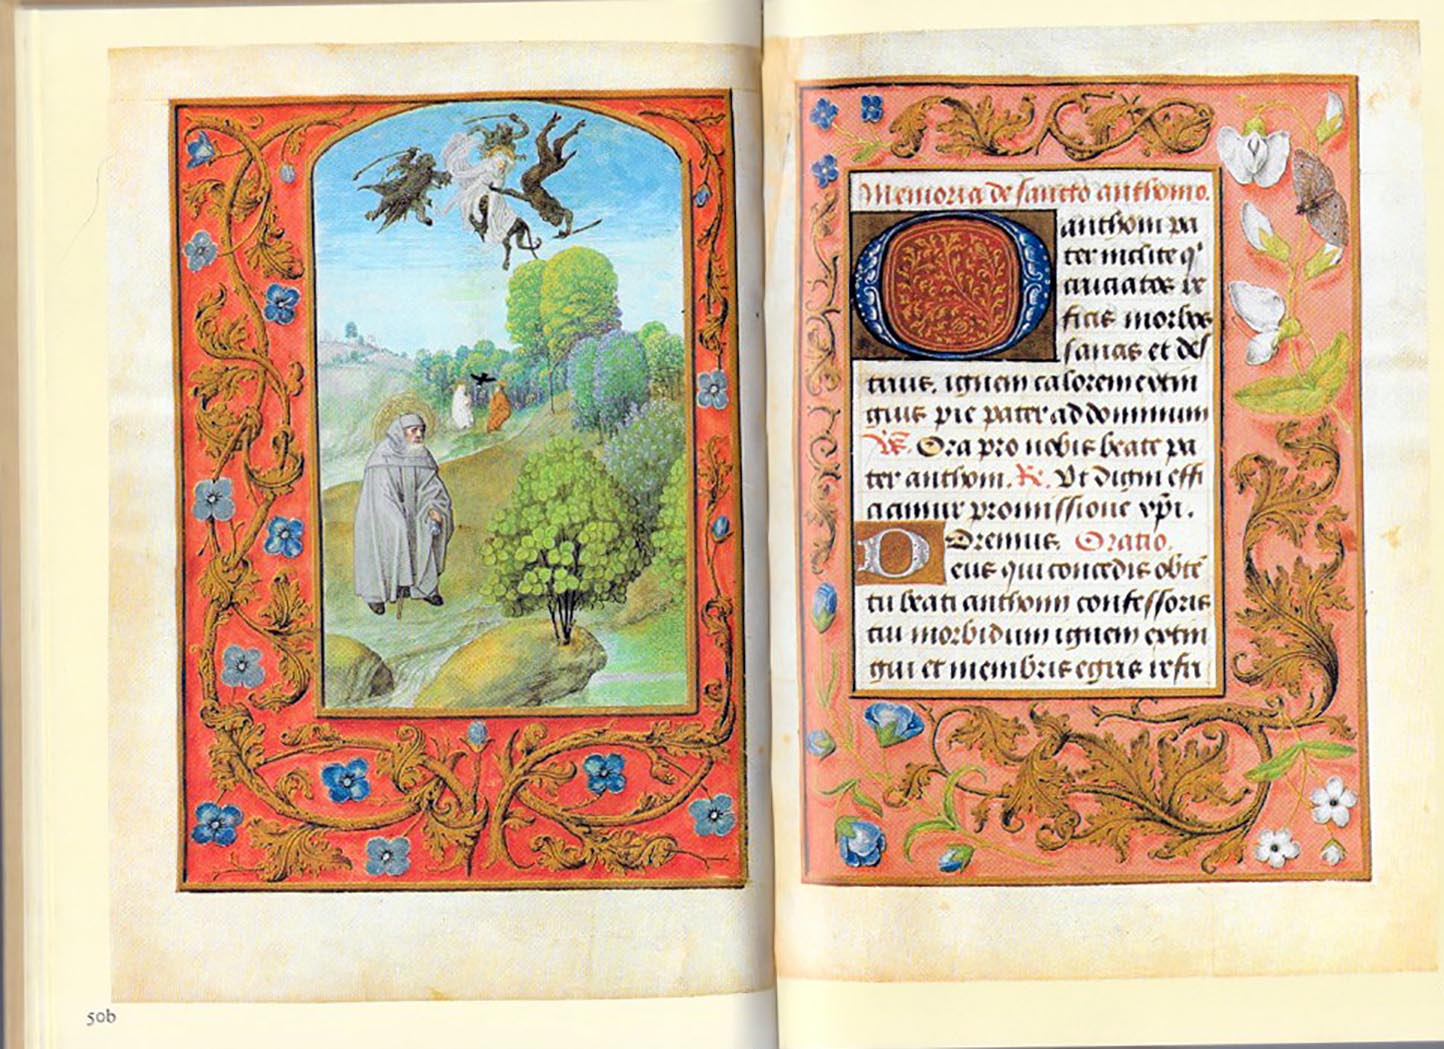 50b
Memoria de sancto anthonio.
O anthoni pa
ter inclite q'
cruciatos ve
ficis morbos
sanas et des
truis. ignem calorem extin
guis pie pater ad dominum
V̄s. Ora pro nobis beate pa
ter anthoni. R̄. Ut digni effi
ciamur promissione xp̄i.
Oremus. Oratio.
Deus qui concedis obtē
tu beati anthonii confessoris
tui morbidum ignem extin
gui et membris egris refri